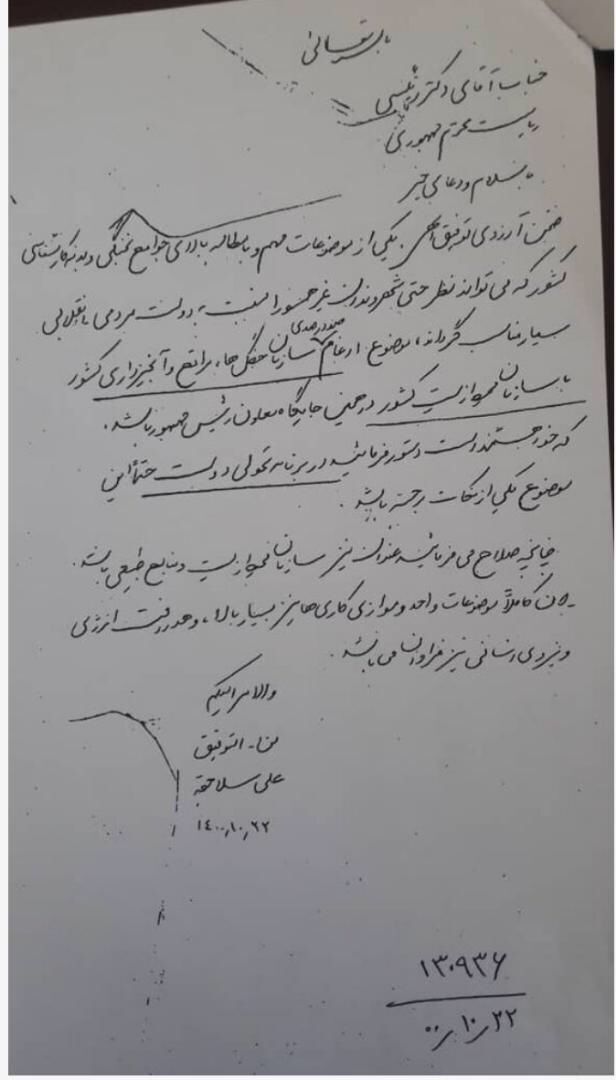 باسمه تعالی
جناب آقای دکتر رئیسی
ریاست محترم جمهوری
با سلام و دعای خیر
ضمن آرزوی توفیق الهی. یکی از موضوعات مهم و با مطالبه بالای جوامع نخبگی و بدنه کارشناسی
کشور که می تواند نظر حتی شهروندان غیر همسو را نسبت به دولت مردمی انقلابی
بسیار مناسب گرداند، موضوع ادغام صددرصدی سازمان جنگل ها، مراتع و آبخیزداری کشور
با سازمان محیط زیست کشور در همین جایگاه معاون رئیس جمهور باشد.
که خواهشمند است دستور فرمائید در برنامه تحولی دولت حتماً این
موضوع یکی از نکات برجسته باشد.
چنانچه صلاح می فرمائید عنوان نیز سازمان محیط زیست و منابع طبیعی باشد.
چون کاملاً موضوعات واحد و موازی کاری ها نیز بسیار بالا، و هدر رفت انرژی
و نیروی انسانی نیز فراوان می باشد.
والامر الیکم
من ا... التوفیق
علی سلاجقه
۱۴۰۰,۱۰,۲۲
۱۳۰۹۳۶
۰۰ر۱۰ر۲۲